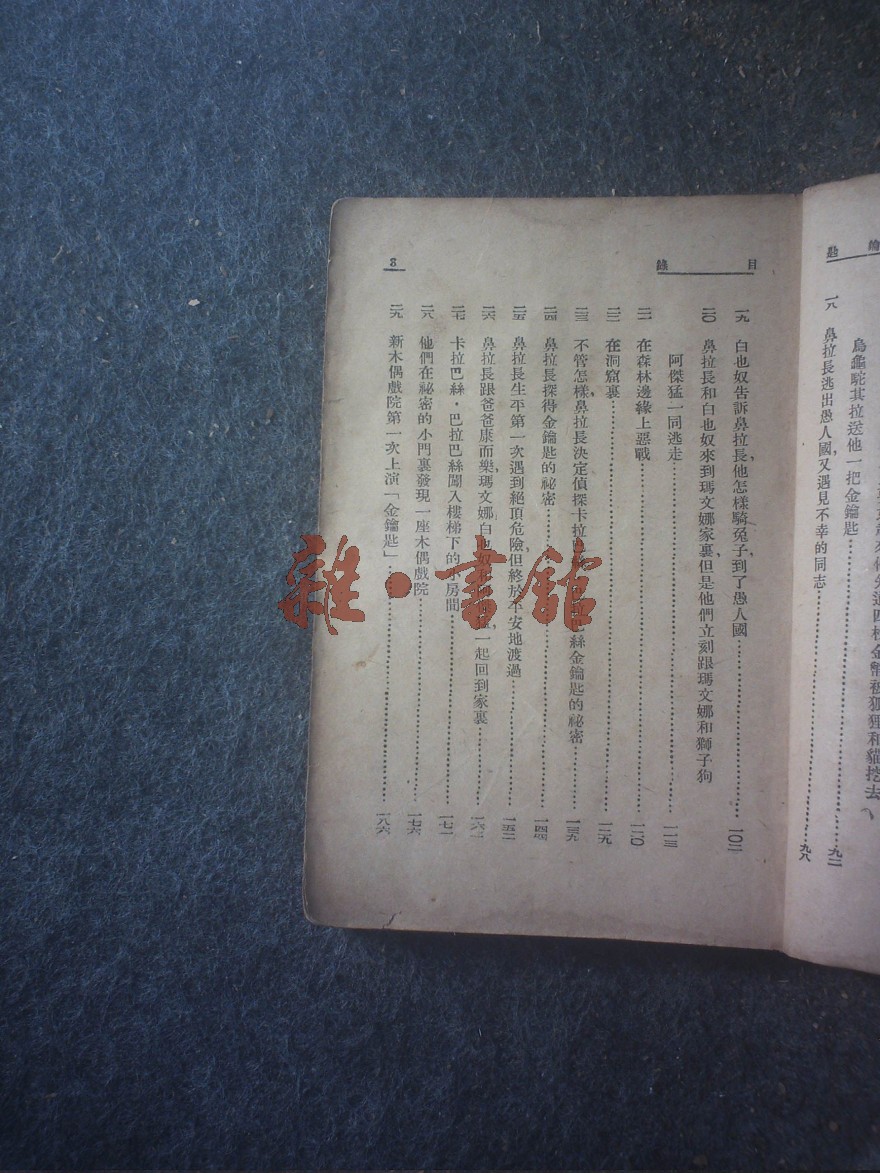 鑰匙
知道四枚金幣被狐狸和貓挖去，
烏龜駝其拉送他一把金鑰匙……九二
一八 鼻拉長逃出愚人國，又遇見不幸的同志……九八
目錄 3
一九 白也奴告訴鼻拉長，他怎樣騎兔子，到了愚人國……一〇二
二〇 鼻拉長和白也奴來到瑪文娜家裏，但是他們立刻跟瑪文娜和獅子狗
阿傑猛一同逃走……一一三
二一 在森林邊緣上惡戰……一二〇
二二 在洞窟裏……一二九
二三 不管怎樣，鼻拉長決定偵探卡拉 絲金鑰匙的祕密……一三九
二四 鼻拉長探得金鑰匙的祕密……
二五 鼻拉長生平第一次遇到絕頂危險，但終於平安地渡過……一五二
二六 鼻拉長跟爸爸康而樂，瑪文娜，白也奴 一起回到家裏……
二七 卡拉巴絲・巴拉巴絲闖入樓梯下的小房間……一七一
二八 他們在祕密的小門裏發現一座木偶戲院……一七六
二九 新木偶戲院第一次上演「金鑰匙」……一八六
雜・書館